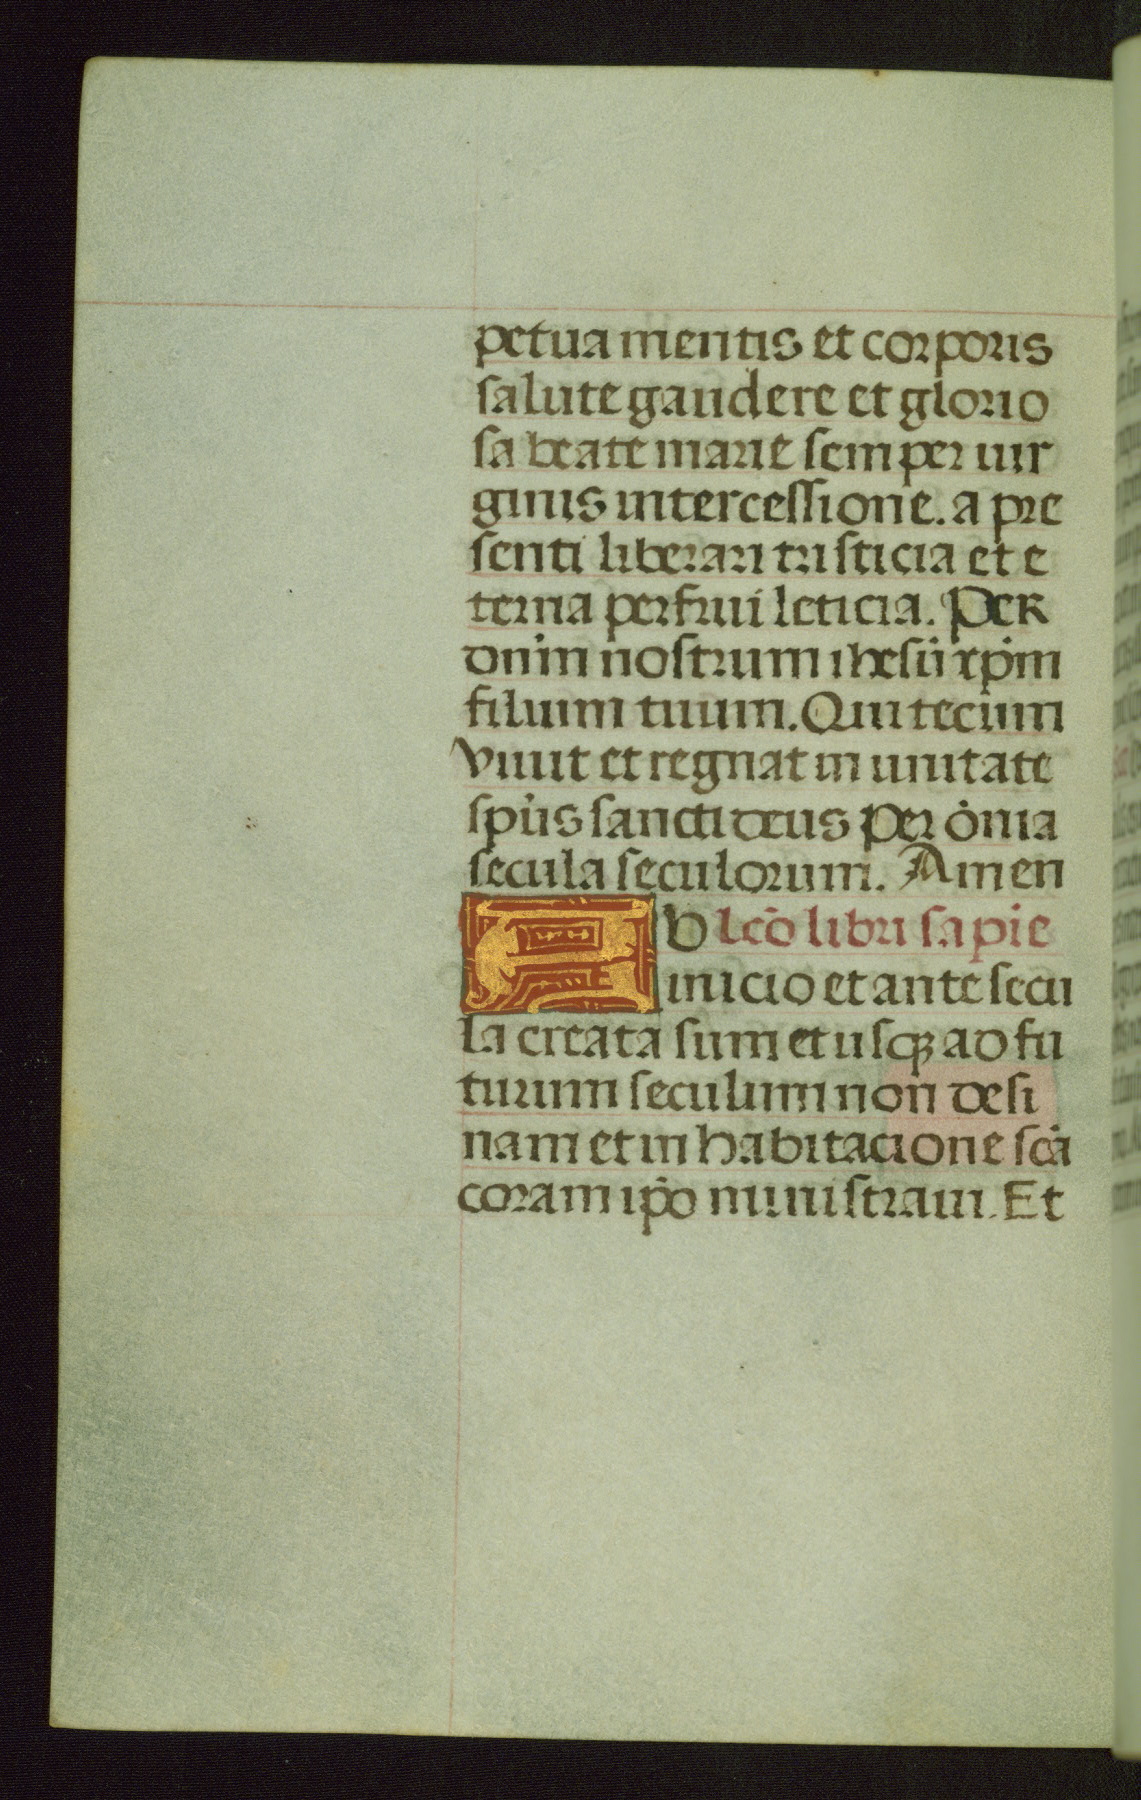 petua mentis et corporis
salute gaudere et glorio
sa beate marie semper uir
ginis intercessione. a pre
senti liberari tristicia et e
terna perfrui leticia. Per
dn̄m nostrum ihesū xp̄m
filium tuum. Qui tecum
viuit et regnat in unitate
sp̄us sancti deus per ōnia
secula seculorum. Amen
Ab lcō libri sapie
inicio et ante secu
la creata sum et usqȝ ad fu
turum seculum non desi
nam et in habitacione scā
coram ip̄o ministraui. Et